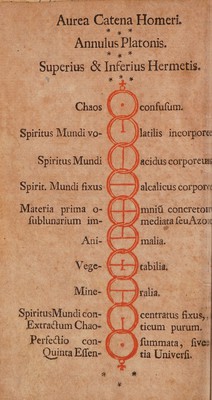 Aurea Catena Homeri.
Annulus Platonis.
Superius & Inferius Hermetis.
Chaos confusum.
Spiritus Mundi vo- latilis incorpore
Spiritus Mundi acidus corporeus
Spirit. Mundi fixus alcalicus corpore
Materia prima o- mniū concretom
sublunarium im- mediata seu Azo
Ani- malia.
Vege- tabilia.
Mine- ralia.
Spiritus Mundi con- centratus fixus,
Extractum Chao- ticum purum.
Perfectio con- summata, sive
Quinta Essen- tia Universi.